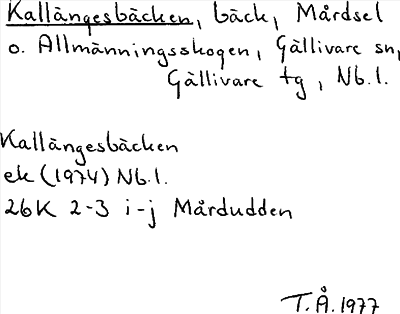 Kallängesbäcken, bäck, Mårdsel
o. Allmänningsskogen, Gällivare sn,
Gällivare tg, Nb.l.
Kallängesbäcken
ek (1974) Nb.l.
26K 2-3 i-j Mårdudden
T.Å. 1977